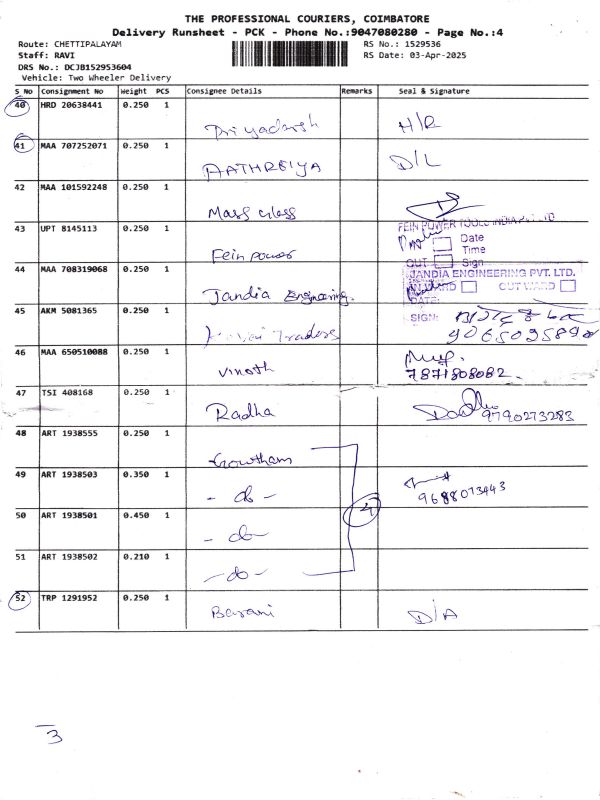 THE PROFESSIONAL COURIERS, COIMBATORE
Delivery Runsheet - PCK - Phone No.:9047080280 - Page No.:4
Route: CHETTIPALAYAM RS No.: 1529536
Staff: RAVI RS Date: 03-Apr-2025
DRS No.: DCJB152953604
Vehicle: Two Wheeler Delivery
S No Consignment No Weight PCS Consignee Details Remarks Seal & Signature
40 HRD 20638441 0.250 1
Priyadarsh H/R
41 MAA 707252071 0.250 1
AATHREIYA D/L
42 MAA 101592248 0.250 1
Mass glass
43 UPT 8145113 0.250 1 FEIN POWER TOOLS INDIA PVT LTD
Date
Time
Fein power OUT Sign
44 MAA 708319068 0.250 1 JANDIA ENGINEERING PVT. LTD.
INWARD OUTWARD
Jandia Engineering. DATE:
45 AKM 5081365 0.250 1 SIGN:
Traders
46 MAA 650510088 0.250 1
Vinoth 7871808082.
47 TSI 408168 0.250 1
Radha 9790273283
48 ART 1938555 0.250 1
Gowtham
49 ART 1938503 0.350 1
- do - 9688073443
50 ART 1938501 0.450 1 4
- do -
51 ART 1938502 0.210 1
- do -
52 TRP 1291952 0.250 1
Barani D/A
3